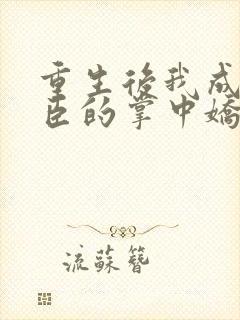 重生後我成
臣的掌中嬌
流蘇簪